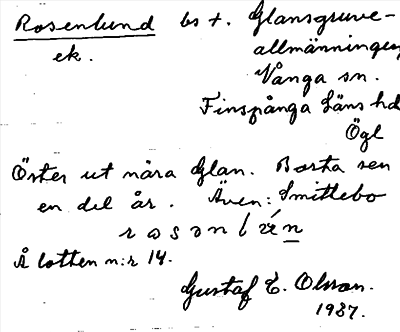 Rosenlund bs t. Glansgruve-
ek. allmänningen
Vånga sn.
Finspånga Läns hd
Ögl
Öster ut nära Glan. Borta sen
en del år. Även: Smittebo
Å lotten n:r 14.
Gustaf E. Olsson.
1937.